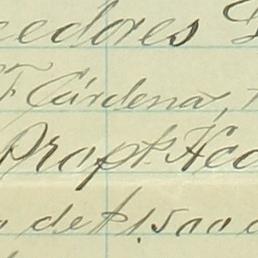 eedores
F Cárdena,
Propt. Hco
de $1.500